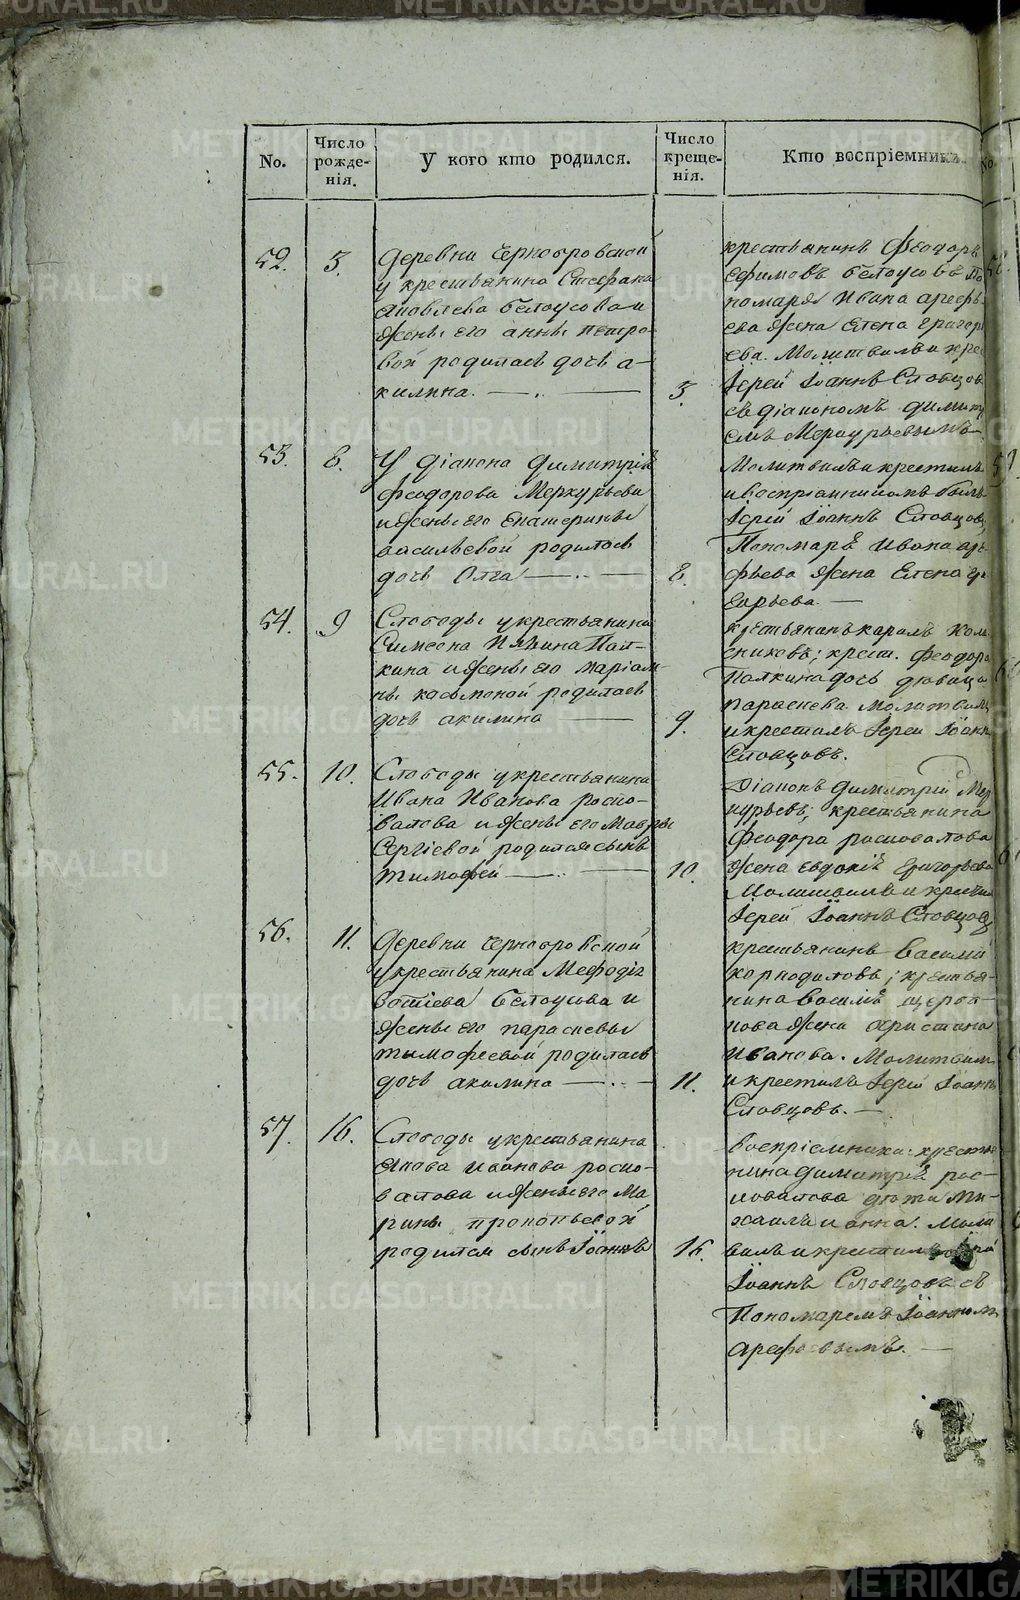 No.
Число рожде-нія.
У кого кто родился.
Число креще-нія.
Кто воспріемники.
52.
3.
деревни Чернобровской
у крестьянина Стефана
Яковлева Белоусова и
жены его Анны Петро-
вой родилась дочь а-
килина.
3.
крестьянинъ Феодоръ
Ефимовъ Белоусовъ По
номаря Ивана Арефь-
ева жена Елена Григорь
ева. Молитвилъ и крес
Іерей Іоаннъ Словцов
съ діакономъ Димит
емъ Меркурьевымъ
53.
8.
У діакона Димитрія
Феодорова Меркурьева
и жены его Екатерины
васильевой родилась
дочь Олга
8.
Молитвилъ и крестилъ
и воспріемникомъ былъ
Іерей Іоаннъ Словцов,
Пономаря Ивана Аре
фьева жена Елена Гри
горьева.
54.
9
Слободы у крестьянина
Симеона Ильина Пал-
кина и жены его Маріам
ны касьяновой родилась
дочь акилина
9.
крестьянинъ карпъ Кол
есниковъ; крест. Феодора
Палкина дочь девица
параскева. Молитвилъ
и крестилъ Іерей Іоанн
Словцовъ.
55.
10.
Слободы у крестьянина
Ивана Иванова Роспо-
валова и жены его Мавры
Сергіевой родился сынъ
тимофей
10.
Діаконъ Димитрій Мер
курьевъ; крестьянина
Феодора росповалова
жена Евдокія Григорьева
Молитвилъ и крестил
Іерей Іоаннъ Словцов
56.
11.
деревни Чернобровской
у крестьянина Мефодія
Белоусова и
жены его параскевы
тимофеевой родилась
дочь акилина
11.
крестьянинъ Василій
Корнодиловъ; крестья-
нина Василія Щерба-
кова жена христина
Иванова. Молитвил
и крестилъ Іерей Іоаннъ
Словцовъ.
57.
16.
Слободы у крестьянина
Якова Иванова роспо-
валова и жены его Ма
рины прокопьевой
родился сынъ Іоаннъ
16.
воспріемники: крестья
нина димитрія рос-
повалова дети Ми-
хаилъ и анна. Моли
вилъ и крестилъ
Іоаннъ Словцовъ съ
Пономаремъ Іоанномъ
арефьевымъ.
METRIKI.GASO-URAL.RU